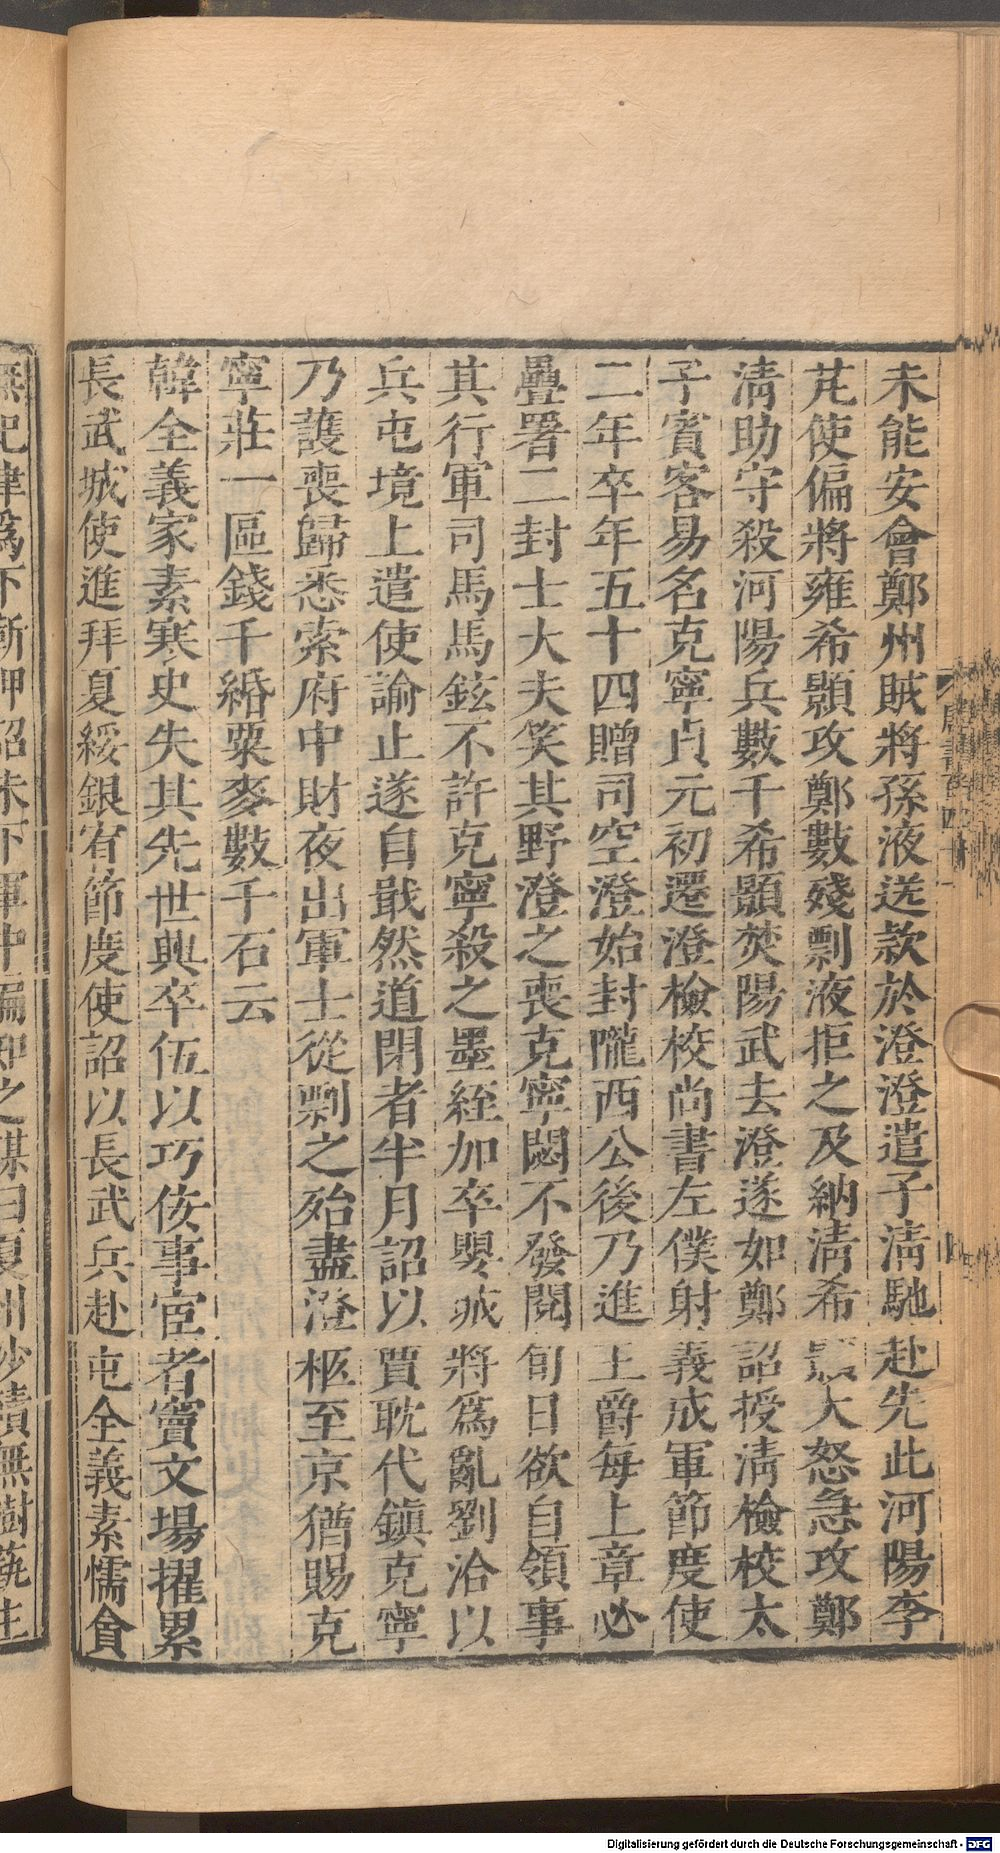 未能安會鄭州賊將孫液送款於澄澄遣子清馳赴先此河陽李
芃使偏將雍希顥攻鄭數殘剽液拒之及納清希顥大怒急攻鄭
清助守殺河陽兵數千希顥焚陽武去澄遂如鄭詔授清檢校太
子賓客易名克寧貞元初遷澄檢校尚書左僕射義成軍節度使
二年卒年五十四贈司空澄始封隴西公後乃進王爵每上章必
疊署二封士大夫笑其野澄之喪克寧閟不發閱旬日欲自領事
其行軍司馬馬鉉不許克寧殺之墨絰加卒嬰城將為亂劉洽以
兵屯境上遣使諭止遂自戢然道閉者半月詔以賈耽代鎮克寧
乃護喪歸悉索府中財夜出軍士從剽之殆盡澄柩至京猶賜克
寧莊一區錢千緡粟麥數千石云
韓全義家素寒史失其先世興卒伍以巧佞事宦者竇文場擢累
長武城使進拜夏綏銀宥節度使詔以長武兵赴屯全義素懦貪
無紀律為下斬押詔未下軍中偏知之謀曰夏州沙磧無樹蓺生
唐書百四十一
Digitalisierung gefördert durch die Deutsche Forschungsgemeinschaft - DFG